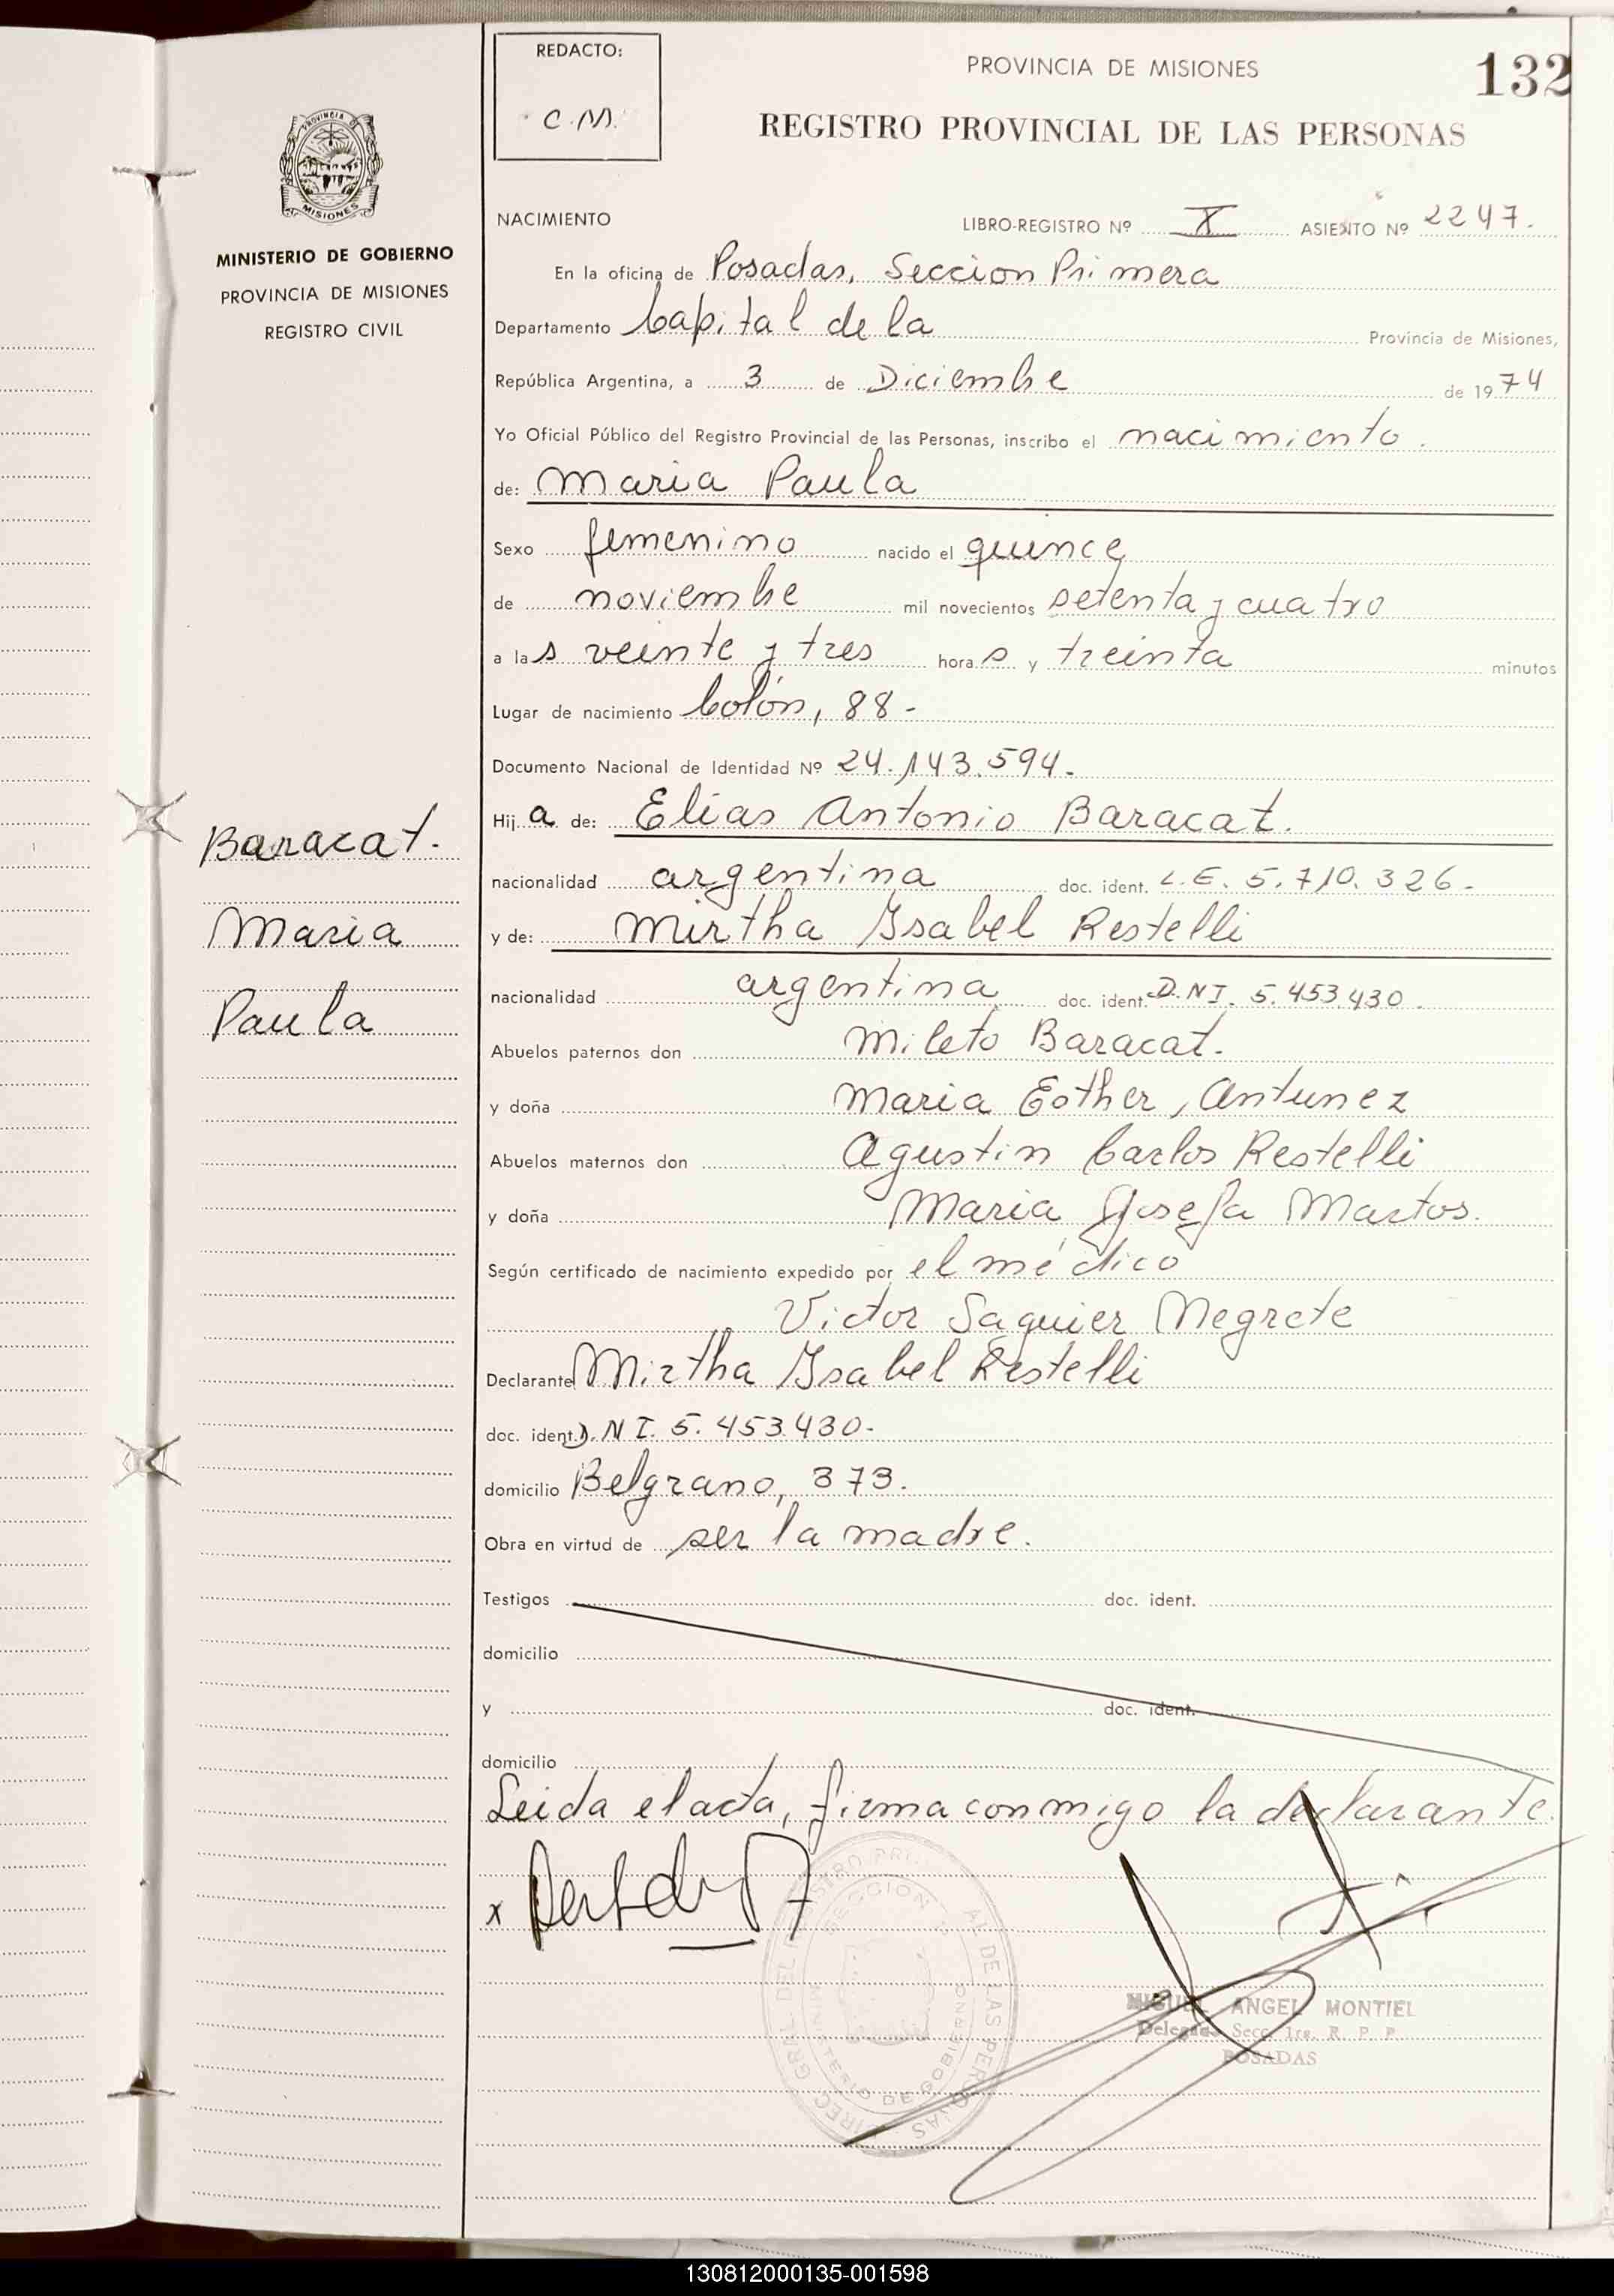 REDACTO:
C.M.
PROVINCIA DE MISIONES
132
REGISTRO PROVINCIAL DE LAS PERSONAS
PROVINCIA DE
MISIONES
MINISTERIO DE GOBIERNO
PROVINCIA DE MISIONES
REGISTRO CIVIL
NACIMIENTO LIBRO-REGISTRO Nº X ASIENTO Nº 2247.
En la oficina de Posadas, Seccion Primera
Departamento Capital de la Provincia de Misiones,
República Argentina, a 3 de Diciembre de 1974
Yo Oficial Público del Registro Provincial de las Personas, inscribo el nacimiento.
de: Maria Paula
Sexo femenino nacido el quince
de noviembre mil novecientos setenta y cuatro
a las veinte y tres horas y treinta minutos
Lugar de nacimiento Colón, 88-
Documento Nacional de Identidad Nº 24.143.594.
Hija de: Elias Antonio Baracat.
nacionalidad argentina doc. ident. L.E. 5.710.326-
y de: Mirtha Ysabel Restelli
nacionalidad argentina doc. ident. D.N I. 5.453.430.
Abuelos paternos don Mileto Baracat.
y doña Maria Esther, Antunez
Abuelos maternos don Agustin Carlos Restelli
y doña Maria Josefa Martos.
Según certificado de nacimiento expedido por el médico
Victor Saguier Negrete
Declarante Mirtha Ysabel Restelli
doc. ident. D.N I. 5.453.430-
domicilio Belgrano, 373.
Obra en virtud de ser la madre.
Testigos doc. ident.
domicilio
y doc. ident.
domicilio
Leida el acta, firma conmigo la declarante.
Baracat.
Maria
Paula
x
MIGUEL ANGEL MONTIEL
Delegado Secc. 1ra. R. P. P.
POSADAS
130812000135-001598